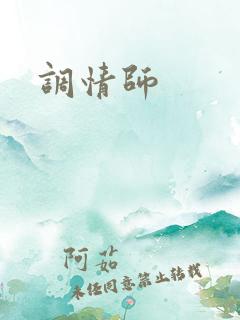 調情師
阿茹
未经同意禁止转载